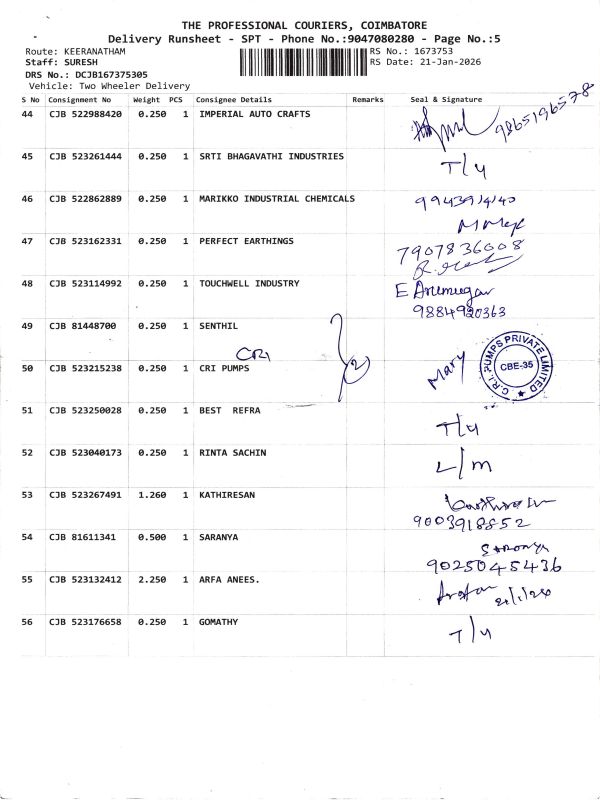 THE PROFESSIONAL COURIERS, COIMBATORE
Delivery Runsheet - SPT - Phone No.:9047080280 - Page No.:5
Route: KEERANATHAM RS No.: 1673753
Staff: SURESH RS Date: 21-Jan-2026
DRS No.: DCJB167375305
Vehicle: Two Wheeler Delivery
S No Consignment No Weight PCS Consignee Details Remarks Seal & Signature
44 CJB 522988420 0.250 1 IMPERIAL AUTO CRAFTS 9865196578
45 CJB 523261444 0.250 1 SRTI BHAGAVATHI INDUSTRIES T/4
46 CJB 522862889 0.250 1 MARIKKO INDUSTRIAL CHEMICALS
47 CJB 523162331 0.250 1 PERFECT EARTHINGS 7907836008
48 CJB 523114992 0.250 1 TOUCHWELL INDUSTRY E Arumugam
9884920363
49 CJB 81448700 0.250 1 SENTHIL
CRI
50 CJB 523215238 0.250 1 CRI PUMPS 2 Mary C.R.I. PUMPS PRIVATE LIMITED CBE-35
51 CJB 523250028 0.250 1 BEST REFRA T/4
52 CJB 523040173 0.250 1 RINTA SACHIN L/m
53 CJB 523267491 1.260 1 KATHIRESAN
9003918852
54 CJB 81611341 0.500 1 SARANYA Saranya
9025045436
55 CJB 523132412 2.250 1 ARFA ANEES.
56 CJB 523176658 0.250 1 GOMATHY T/4